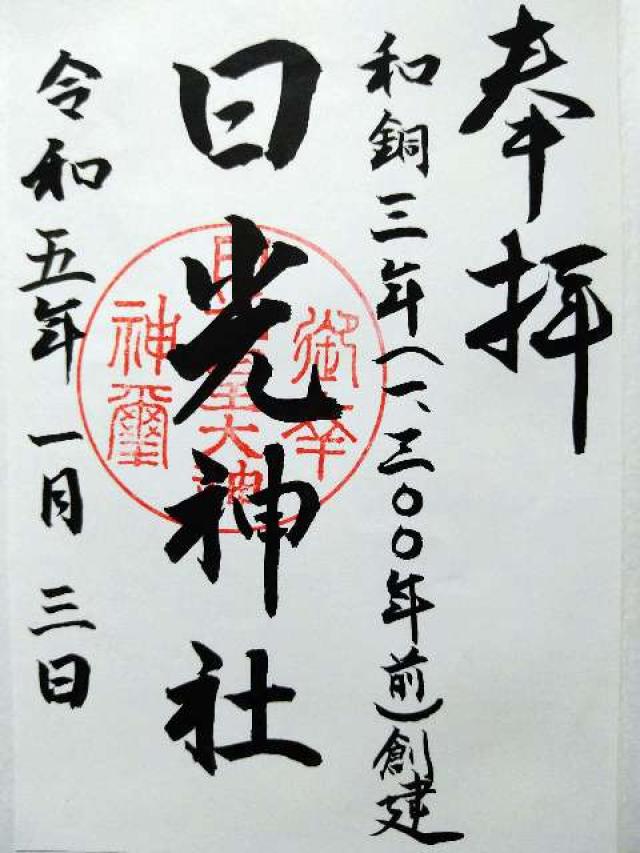 奉拝
和銅三年(一、三〇〇年前)創建
日光神社
令和五年 一月 三日
神璽